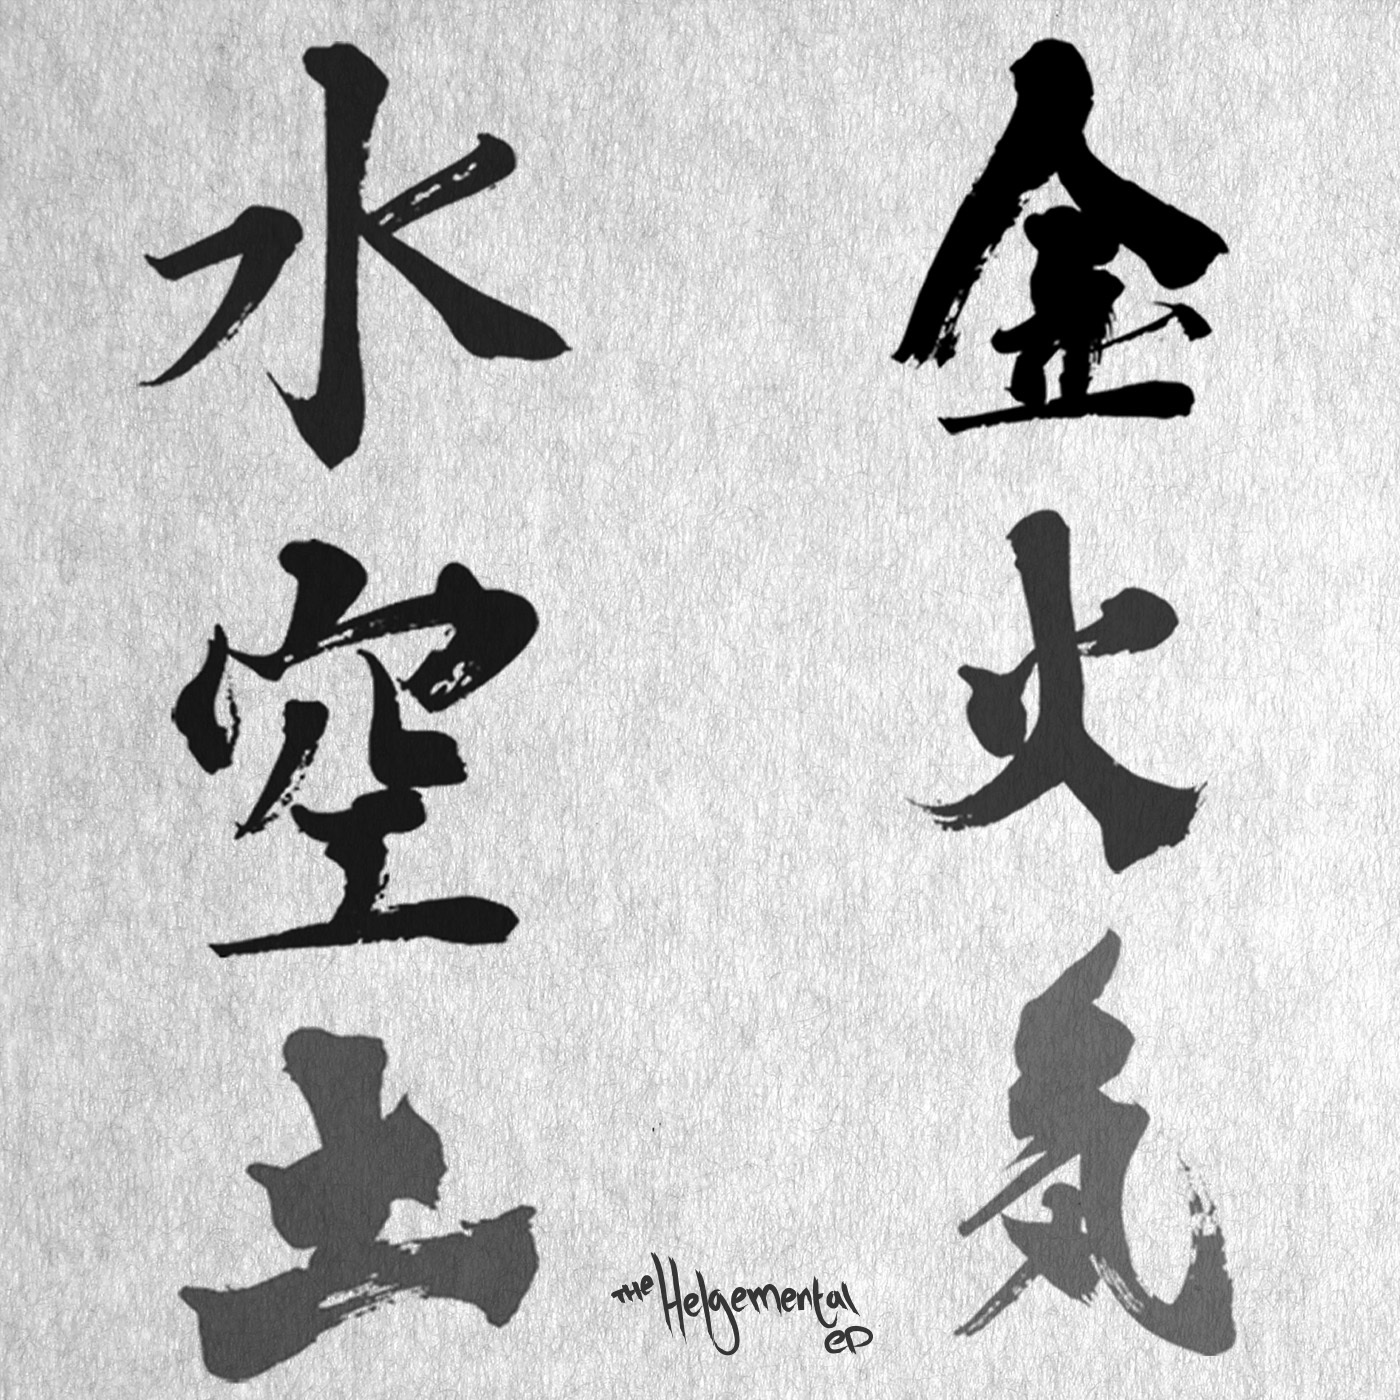 水 金
空 火
土 気
THE Helgemental
eP